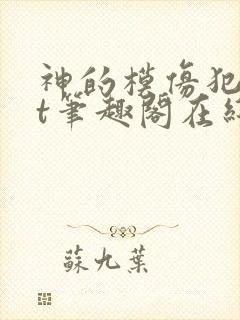 神的模傷犯
t筆趣閣在
蘇九葉